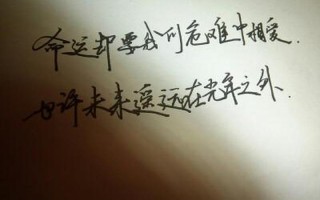 命运却要我们危难中相爱.
也许未来遥远在光年之外.